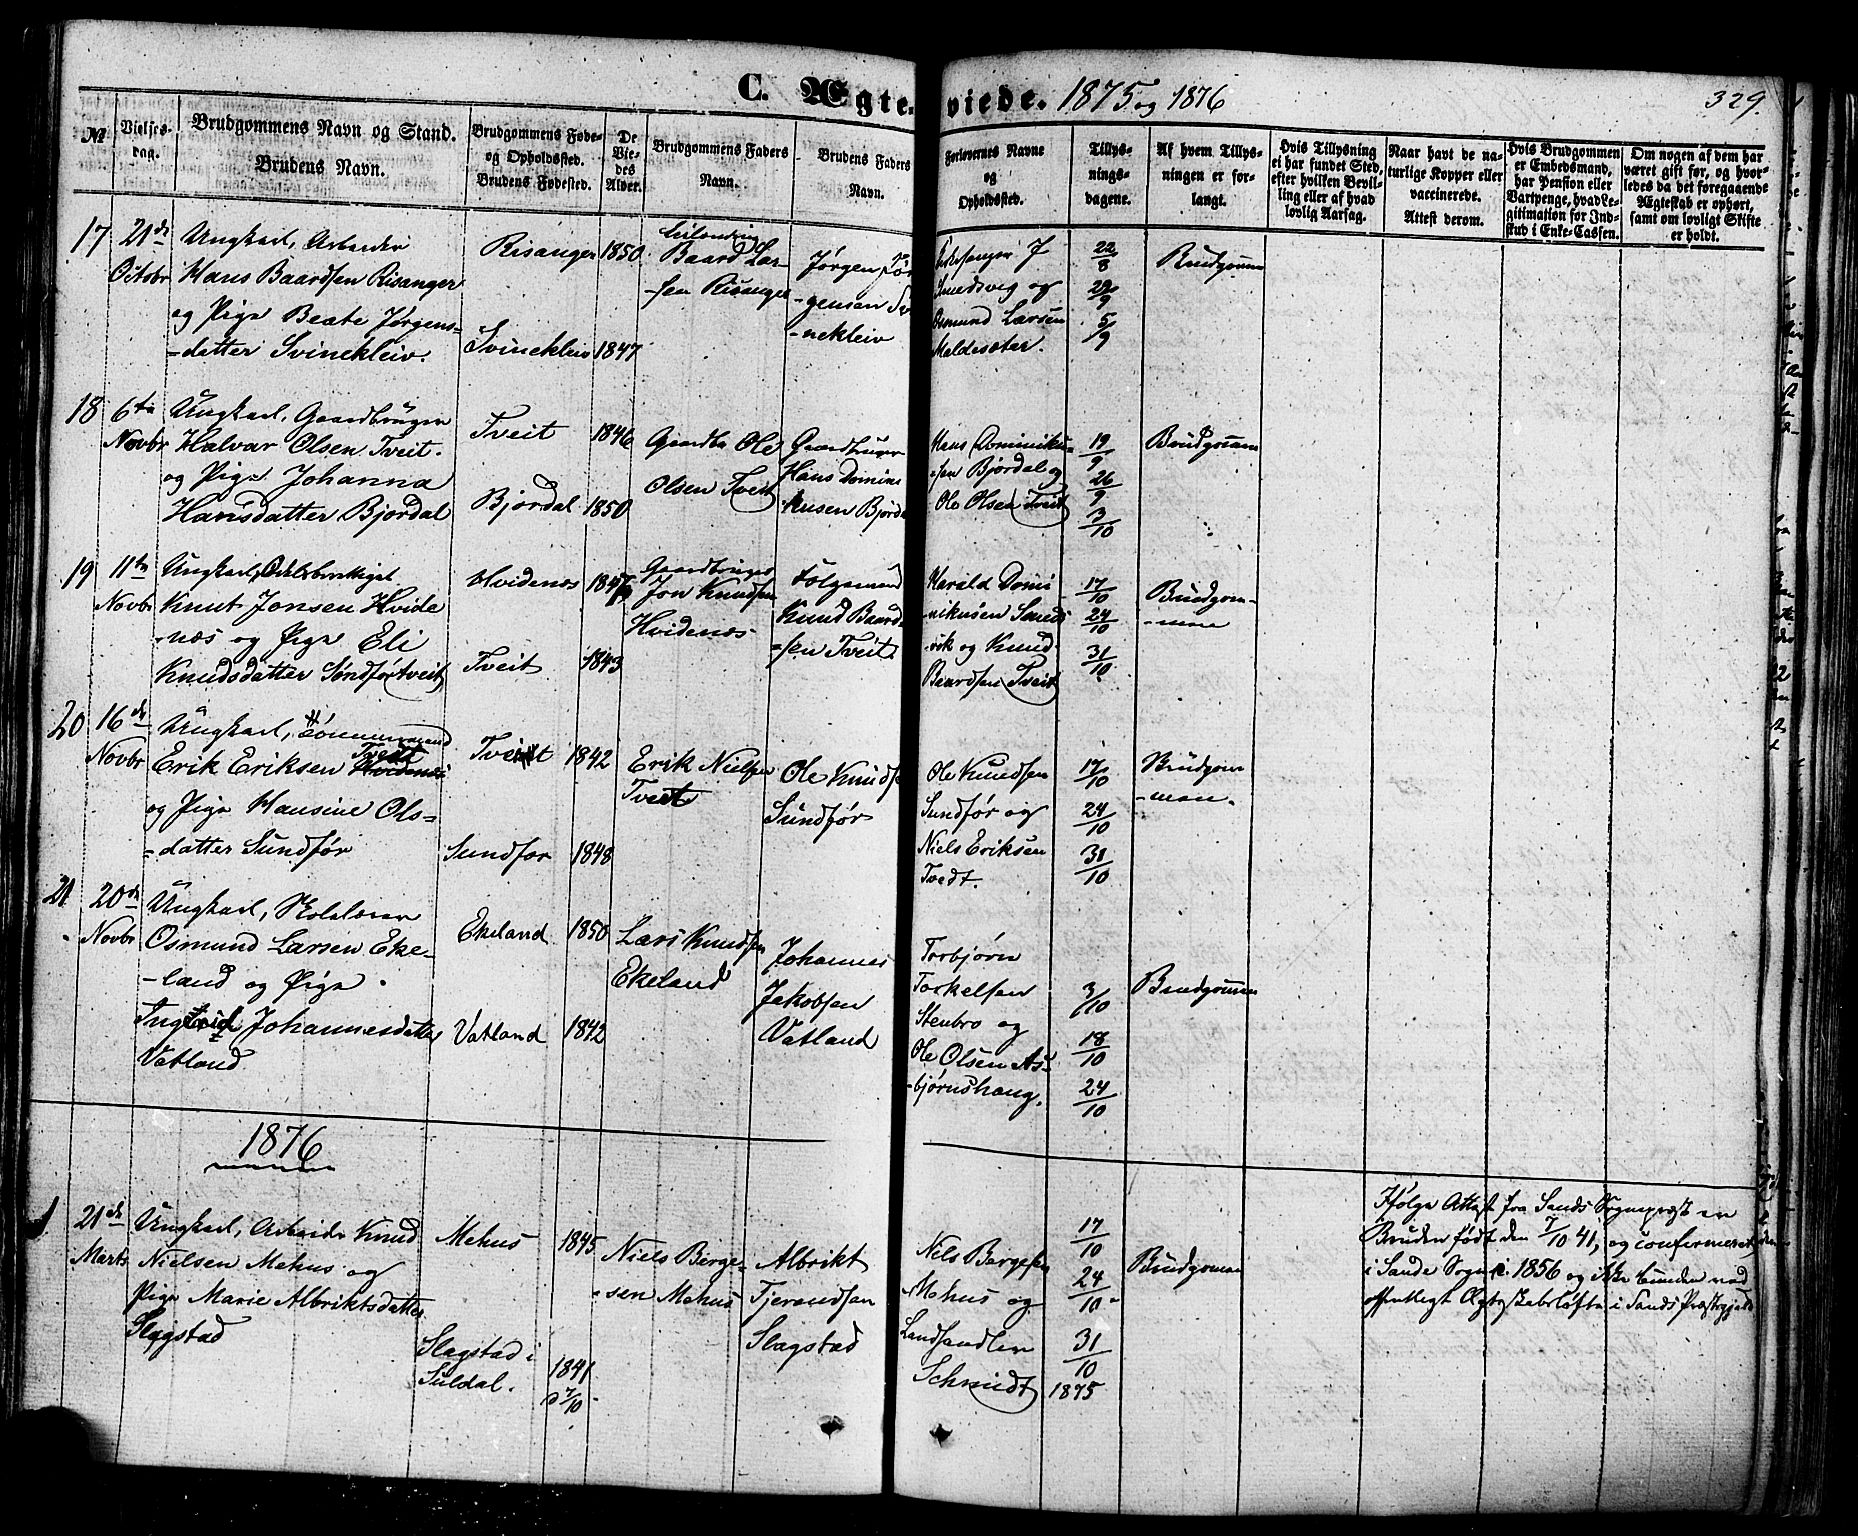 C. Ægteviede. 1875 og 1876
329.
№
Vielses-
dag.
Brudgommens Navn og Stand.
Brudens Navn.
Brudgommens Føde-
og Opholdssted.
Brudens Fødested.
De
Vie-
des
Alder.
Brudgommens Faders
Navn.
Brudens Faders
Navn.
Forlovernes Navne
og
Opholdssted.
Tillys-
nings-
dagene.
Af hvem Tillys-
ningen er for-
langt.
Hvis Tillysning
ei har fundet Sted,
efter hvilken Bevil-
ling eller af hvad
lovlig Aarsag.
Naar havt de na-
turlige Kopper eller
vaccinerede.
Attest derom.
Hvis Brudgommen
er Embedsmand,
har Pension eller
Vartpenge, hvad Le-
gitimation for Ind-
skud i Enke-Cassen.
Om nogen af dem har
været gift før, og hvor-
ledes da det foregaaende
Ægteskab er ophørt,
samt om lovligt Skifte
er holdt.
17
21de
Octobr
Ungkarl, Arbeider
Hans Baardsen Risanger
og Pige Beate Jørgens-
-datter Svinekleiv.
Risanger 1850
Svinekleiv 1847
Baard Lar-
-sen Risanger
Jørgen Jør
-gensen Svi
-nekleiv
Kirkesanger J
Smedsvig og
Osmund Larsen
Meldesæter.
22/8
29/9
5/9
Brudgomm
18
6te
Novbr
Ungkarl, Gaardbruger
Halvar Olsen Tveit.
og Pige Johanna
Hansdatter Bjordal
Tveit 1846
Bjordal 1850
Gaardbr Ole
Olsen Tveit
Gaardbruger
Hans Domini
kusen Bjorda
Hans Dominiku-
-sen Bjordal og
Ole Olsen Tveit
19/9
26/9
3/10
Brudgomm
19
11te
Novbr
Ungkarl,
Knut Jonsen Hvide
-næs og Pige Eli
Knudsdatter Søndførtveit
Hvidenæs 1847
Tveit 1843
Gaardbruger
Jon Knudsen
Hvidenæs
Følgemand
Knud Baard
-sen Tveit
Harald Domi
nikusen Sands
vik og Knud
Baardsen Tveit
17/10
24/10
31/10
Brudgom-
-men
20
16de
Novbr
Ungkarl, Tømmermand
Erik Eriksen Tvedt
og Pige Hansine Ols-
-datter Sundfør
Tveit 1842
Sundfør 1848
Erik Nielsen
Tveit
Ole Knuds
Sundfør
Ole Knudsen
Sundfør og
Niels Eriksen
Tvedt.
17/10
24/10
31/10
Brudgom
-men
21
20de
Novbr
Ungkarl, Skolelærer
Osmund Larsen Eke-
-land og Pige
Ingerid Johannesdatter
Vatland
Ekeland 1850
Vatland 1842
Lars Knudsen
Ekeland
Johannes
Jakobsen
Vatland
Torbjørn
Torkelsen
Stenbro og
Ole Olsen As-
-bjørnshaug.
3/10
18/10
24/10
Brudgommen
1876
1
21de
Marts
Ungkarl, Arbeider Knud
Nielsen Mehus og
Pige Marie Albriktsdatter
Slagstad
Mehus 1845
Slagstad i
Suldal.
1841
d 7/10
Niels Birge-
-sen Mehus
Albrikt
Tjerandsen
Slagstad
Nils Bergesen
Mehus og
Landhandler
Schmidt
17/10
24/10
31/10
1875
Brudgommen
Ifølge Attest fra Sands Sognepræst er
Bruden født den 7/10 41, og confirmeret
i Sande Sogn 1856 og ikke bunden ved
offentligt Ægteskabsløfte i Sands Præstegjeld